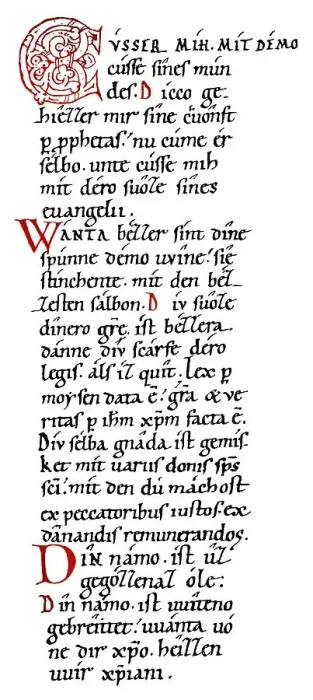 CVSSER MIH. MIT DÉMO
cússe sînes mún
des. Dicco ge-
hîeller mir sîne chûonft
ꝑ ꝓphetas.' nu cúme ér
sélbo. unte cússe mih
mit déro sûoƶe sînes
euangelii.
WÁNTA bézzer sint dîne
spúnne démo uuîne.' sîe
stínchente. mit den béz-
zesten sálbon. Díu sûoƶe
dínero grẽ. ist bézzera
dánne díu scárfe déro
legis. áls iz quît. lex ꝑ
moẏsen data ẽ.' grã & ve-
ritas ꝑ ihm̃ xp̃m facta ẽ.
Díu sélba gnâda ist gemis-
ket mít uarus donis sp̃s
sc̃i.' mít den dú máchost
ex peccatoribus iustos. ex
dãnandis remunerandos.
DÎN námo. ist ûz
gegózzenaz óle.
Dîn námo. ist uuîteno
gebréittet.' uuánta uó
ne dir xp̃o. héizzen
uuír xp̃iani.